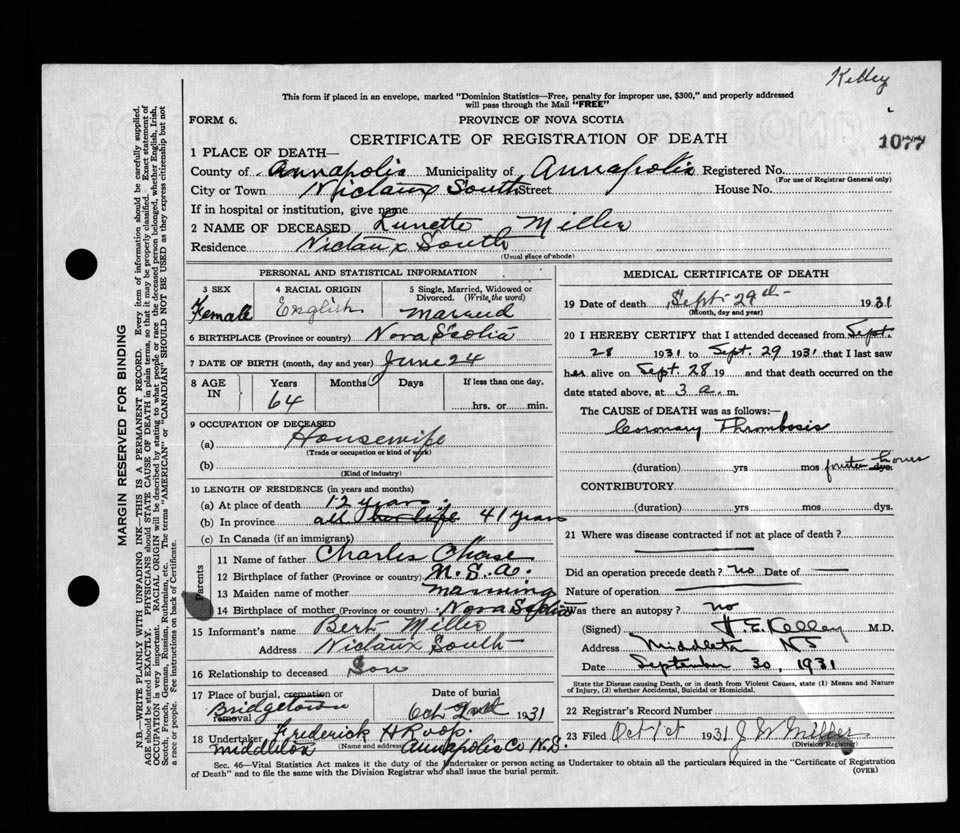 Kelley
This form if placed in an envelope, marked "Dominion Statistics—Free, penalty for improper use, $300," and properly addressed
will pass through the Mail "FREE"
FORM 6.
PROVINCE OF NOVA SCOTIA
CERTIFICATE OF REGISTRATION OF DEATH
1077
1 PLACE OF DEATH—
County of Annapolis Municipality of Annapolis Registered No.
(For use of Registrar General only)
City or Town Nictaux South Street House No.
If in hospital or institution, give name
2 NAME OF DECEASED Lunette Miller
Residence Nictaux South
(Usual place of abode)
PERSONAL AND STATISTICAL INFORMATION
3 SEX 4 RACIAL ORIGIN 5 Single, Married, Widowed or
Divorced. (Write the word)
Female English Married
6 BIRTHPLACE (Province or country) Nova Scotia
7 DATE OF BIRTH (month, day and year) June 24
8 AGE IN Years Months Days If less than one day,
64 hrs. or min.
9 OCCUPATION OF DECEASED
(a) Housewife
(Trade or occupation or kind of work)
(b)
(Kind of industry)
10 LENGTH OF RESIDENCE (in years and months)
(a) At place of death 12 years
(b) In province all her life 41 years
(c) In Canada (if an immigrant)
Parents
11 Name of father Charles Chase
12 Birthplace of father (Province or country) N.S.
13 Maiden name of mother Manning
14 Birthplace of mother (Province or country) Nova Scotia
15 Informant's name Bert Miller
Address Nictaux South
16 Relationship to deceased Son
17 Place of burial, cremation or removal Date of burial
Bridgetown Oct 2nd 1931
18 Undertaker Frederick H Roop
(Name and address)
Middleton Annapolis Co N.S.
MEDICAL CERTIFICATE OF DEATH
19 Date of death Sept 29th 1931
(Month, day and year)
20 I HEREBY CERTIFY that I attended deceased from Sept.
28 1931 to Sept. 29 1931 that I last saw
her alive on Sept 28 19 and that death occurred on the
date stated above, at 3 a. m.
The CAUSE OF DEATH was as follows:—
Coronary Thrombosis
(duration) yrs mos dys. hours
CONTRIBUTORY
(duration) yrs. mos dys.
21 Where was disease contracted if not at place of death?
Did an operation precede death? no Date of
Nature of operation
Was there an autopsy? no
(Signed) H. E. Kelley M.D.
Address Middleton NS
Date September 30, 1931
State the Disease causing Death, or in death from Violent Causes, state (1) Means and Nature
of Injury, (2) whether Accidental, Suicidal or Homicidal.
22 Registrar's Record Number
23 Filed Oct 1st 1931 J W Miller
(Division Registrar)
Sec. 46—Vital Statistics Act makes it the duty of the Undertaker or person acting as Undertaker to obtain all the particulars required in the "Certificate of Registration
of Death" and to file the same with the Division Registrar who shall issue the burial permit.
(OVER)
MARGIN RESERVED FOR BINDING
N.B.—WRITE PLAINLY WITH UNFADING INK—THIS IS A PERMANENT RECORD. Every item of information should be carefully supplied.
AGE should be stated EXACTLY. PHYSICIANS should STATE CAUSE OF DEATH in plain terms, so that it may be properly classified. Exact statement of
OCCUPATION is very important. RACIAL ORIGIN will be described by stating to what people or race the deceased person belonged, whether English, Irish,
Scotch, French, German, Russian, Ruthenian, etc. The terms "AMERICAN" or "CANADIAN" SHOULD NOT BE USED as they express citizenship but not
a race or people. Fee instructions on back of Certificate.